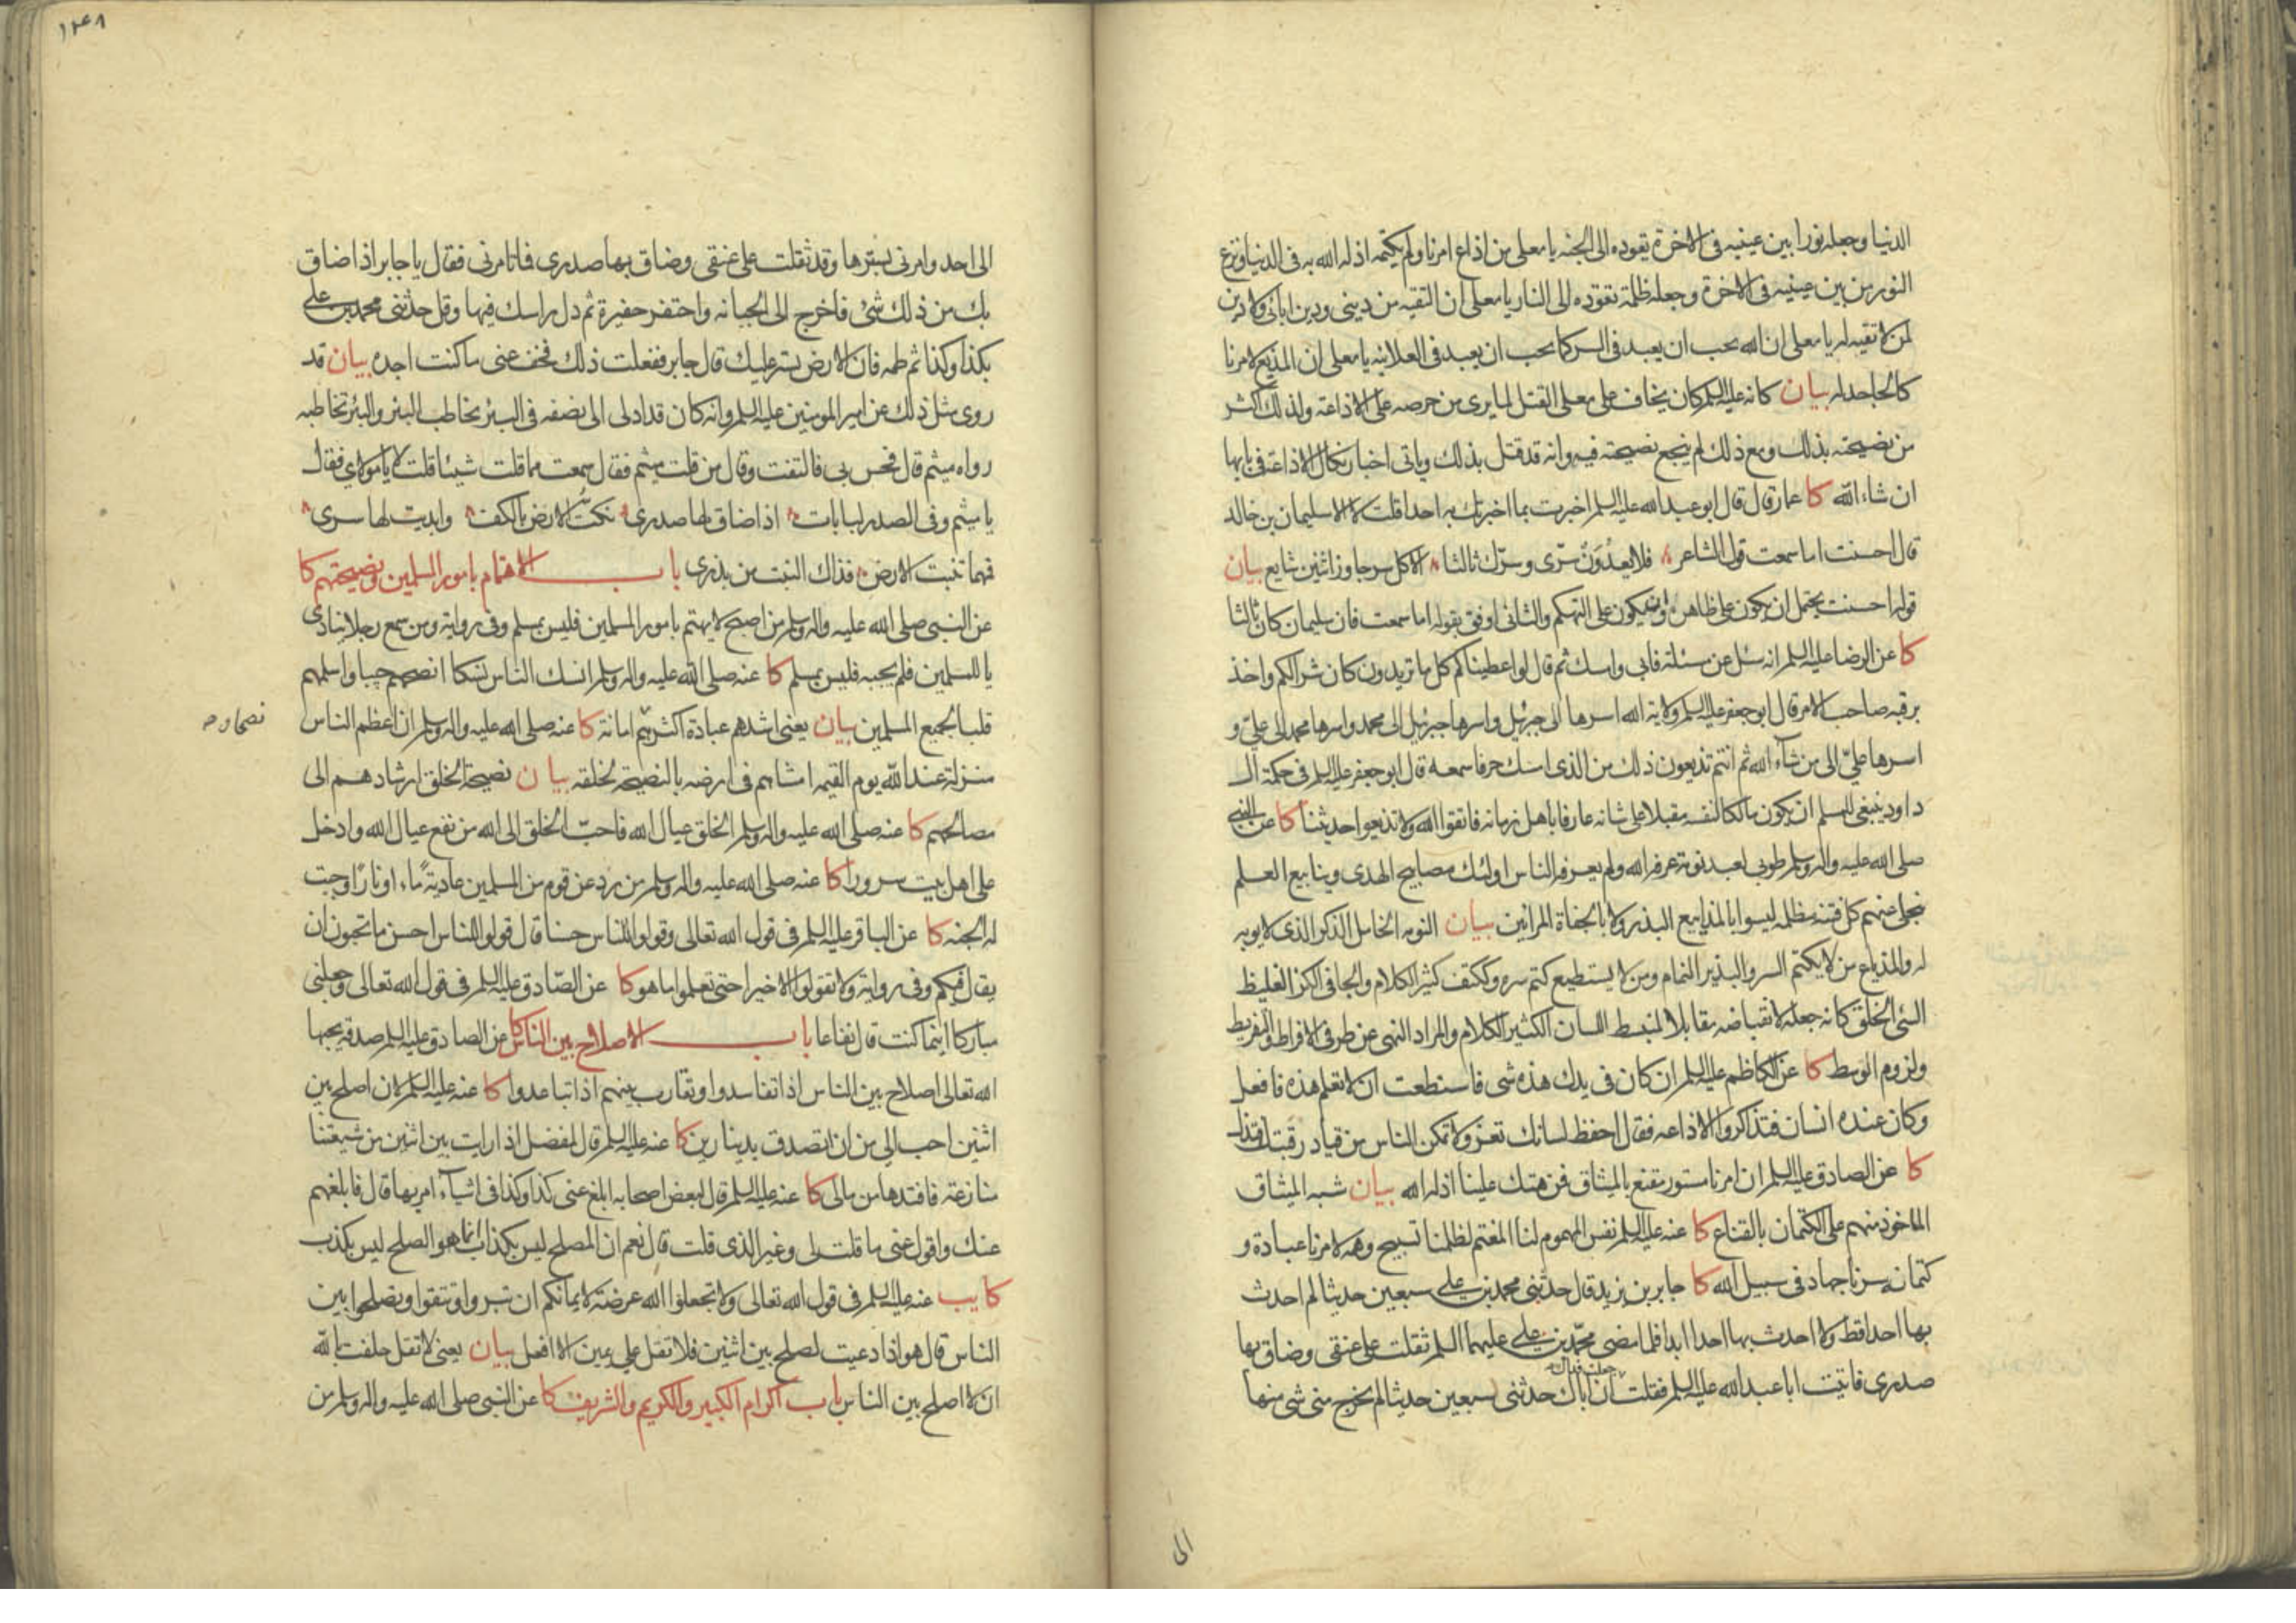 الدنيا وجعله نورا بين عينيه فى الاخرة تقوده الى الجنه يا معلى من اذاع امرنا ولم يكتمه اذله الله به فى الدنيا ونزع
النور من بين عينيه فى الاخرة وجعله ظلمة تقوده الى النار يا معلى ان التقيه من دينى ودين ابائى ولا دين
لمن لا تقيه له يا معلى ان الله يحب ان يعبد فى السر كما يحب ان يعبد فى العلانيه يا معلى ان المذيع لامرنا
كالجاحد له بيان كانه عليه السلم كان يخاف على معلى القتل لما يرى من حرصه على الاذاعة ولذلك اكثر
من نصيحته بذلك ومع ذلك لم ينجع نصيحته فيه وانه قد قتل بذلك وياتى اخبار نكال الاذاعة فى بابها
ان شاء الله كا عمار قال قال ابو عبد الله عليه السلم اخبرت بما اخبرتك به احدا قلت لا الا سليمان بن خالد
قال احسنت اما سمعت قول الشاعر فلا يعدون سرّى وسرّك ثالثا الا كل سر جاوز اثنين شايع بيان
قوله احسنت يحتمل ان يكون على ظاهره وان يكون على التهكم والثانى اوفق بقوله اما سمعت فان سليمان كان ثالثا
كا عن الرضا عليه السلم انه سئل عن مسئلة فابى وامسك ثم قال لو اعطيناكم كل ما تريدون كان شرا لكم واخذ
برقبه صاحب الامر قال ابو جعفر عليه السلم ولاية الله اسرها الى جبرئيل واسرها جبرئيل الى محمد واسرها محمد الى علىّ و
اسرها علىّ الى من شاء الله ثم انتم تذيعون ذلك من الذى امسك حرفا سمعه قال ابو جعفر عليه السلم فى حكمة ال
داود ينبغى للمسلم ان يكون مالكا لنفسه مقبلا على شانه عارفا باهل زمانه فاتقوا الله ولا تذيعوا حديثنا كا عن النبى
صلى الله عليه واله وسلم طوبى لعبد نومة عرفه الله ولم يعرفه الناس اولئك مصابيح الهدى وينابيع العلم
ينجلى عنهم كل فتنه مظلمه ليسوا بالمذاييع البذر ولا بالجفاة المرائين بيان النومه الخامل الذكر الذى لا يوبه
له والمذياع من لا يكتم السر والبذير النمام ومن لا يستطيع كتم سره وككتف كثير الكلام والجافى الكز الغليظ
السئ الخلق كانه جعله لانقباضه مقابلا لمنبسط اللسان الكثير الكلام والمراد النهى عن طرفى الافراط والتفريط
ولزوم الوسط كا عن الكاظم عليه السلم ان كان فى يدك هذه شى فاستطعت ان لا تعلم هذه فافعل
وكان عنده انسان فتذاكروا الاذاعه فقال احفظ لسانك تعز ولا تمكن الناس من قياد رقبتك فتذل
كا عن الصادق عليه السلم ان امرنا مستور مقنع بالميثاق فمن هتك علينا اذله الله بيان شبه الميثاق
الماخوذ منهم على الكتمان بالقناع كا عنه عليه السلم نفس المهموم لنا المغتم لظلمنا تسبيح وهمه لامرنا عبادة و
كتمانه سرنا جهاد فى سبيل الله كا جابر بن يزيد قال حدثنى محمد بن على سبعين حديثا لم احدث
بها احدا قط ولا احدث بها احدا ابدا فلما مضى محمّد بن على عليهما السلم ثقلت على عنقى وضاق بها
صدرى فاتيت ابا عبد الله عليه السلم فقلت جعلت فداك ان اباك حدثنى سبعين حديثا لم يخرج منى شى منها
الى
١٢٤٨
الى احد وامرنى بسترها وقد ثقلت على عنقى وضاق بها صدرى فما تامرنى فقال يا جابر اذا ضاق
بك من ذلك شئ فاخرج الى الجبانه واحتفر حفيرة ثم دل راسك فيها وقل حدثنى محمد بن على
بكذا وكذا ثم طمه فان الارض تستر عليك قال جابر ففعلت ذلك فخف عنى ما كنت اجده بيان قد
روى مثل ذلك عن امير المومنين عليه السلم وانه كان قد ادلى الى نصفه فى البئر يخاطب البئر والبئر تخاطبه
رواه ميثم قال فحس بى فالتفت وقال من قلت ميثم فقال سمعت مما قلت شيئا قلت لا يا مولاى فقال
يا ميثم وفى الصدر لبابات اذا ضاق لها صدرى نكتّ الارض بالكف وابديت لها سرى
فمهما تنبت الارض فذاك النبت من بذرى باب الاهتمام بامور المسلمين ونصيحتهم كا
عن النبى صلى الله عليه واله وسلم من اصبح لا يهتم بامور المسلمين فليس بمسلم وفى رواية ومن سمع رجلا ينادى
يا للمسلمين فلم يجبه فليس بمسلم كا عنه صلى الله عليه واله وسلم انسك الناس نسكا انصحهم جيبا واسلمهم
قلبا لجميع المسلمين بيان يعنى اشدهم عبادة اكثرهم امانة كا عنه صلى الله عليه واله وسلم ان اعظم الناس
منزلة عند الله يوم القيمه امشاهم فى ارضه بالنصيحة لخلقه بيان نصيحة الخلق ارشادهم الى
مصالحهم كا عنه صلى الله عليه واله وسلم الخلق عيال الله فاحبّ الخلق الى الله من نفع عيال الله وادخل
على اهل بيت سرورا كا عنه صلى الله عليه واله وسلم من رد عن قوم من المسلمين عادية ماء او نار اوجبت
له الجنه كا عن الباقر عليه السلم فى قول الله تعالى وقولوا للناس حسنا قال قولوا للناس احسن ما تحبون ان
يقال فيكم وفى رواية ولا تقولوا الا خيرا حتى تعلموا ما هو كا عن الصّادق عليه السلم فى قول الله تعالى وجعلنى
مباركا اينما كنت قال نفاعا باب الاصلاح بين الناس كا عن الصادق عليه السلم صدقه يحبها
الله تعالى اصلاح بين الناس اذا تفاسدوا وتقارب بينهم اذا تباعدوا كا عنه عليه السلم لان اصلح بين
اثنين احب الى من ان اتصدق بدينارين كا عنه عليه السلم قال لمفضل اذا رايت بين اثنين من شيعتنا
منازعة فافتدها من مالى كا عنه عليه السلم قال لبعض اصحابه ابلغ عنى كذا وكذا فى اشياء امر بها قال فابلغهم
عنك واقول عنى ما قلت لى وغير الذى قلت قال نعم ان المصلح ليس بكذاب انما هو الصلح ليس بكذب
كا يب عنه عليه السلم فى قول الله تعالى ولا تجعلوا الله عرضة لايمانكم ان تبروا وتتقوا وتصلحوا بين
الناس قال هو اذا دعيت لصلح بين اثنين فلا تقل على يمين الا افعل بيان يعنى لا تقل حلفت بالله
ان لا اصلح بين الناس باب اكرام الكبير والكريم والشريف كا عن النبى صلى الله عليه واله وسلم من